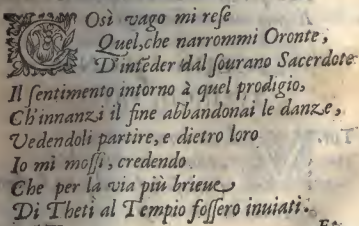 COsì vago mi rese
Quel, che narrommi Oronte,
D'inteder dal sourano Sacerdote
Il sentimento intorno à quel prodigio,
Ch'innanzi il fine abbandonai le danze,
Vedendoli partire, e dietro loro
Io mi mossi, credendo
Che per la via più brieue
Di Theti al Tempio fossero inuiati.